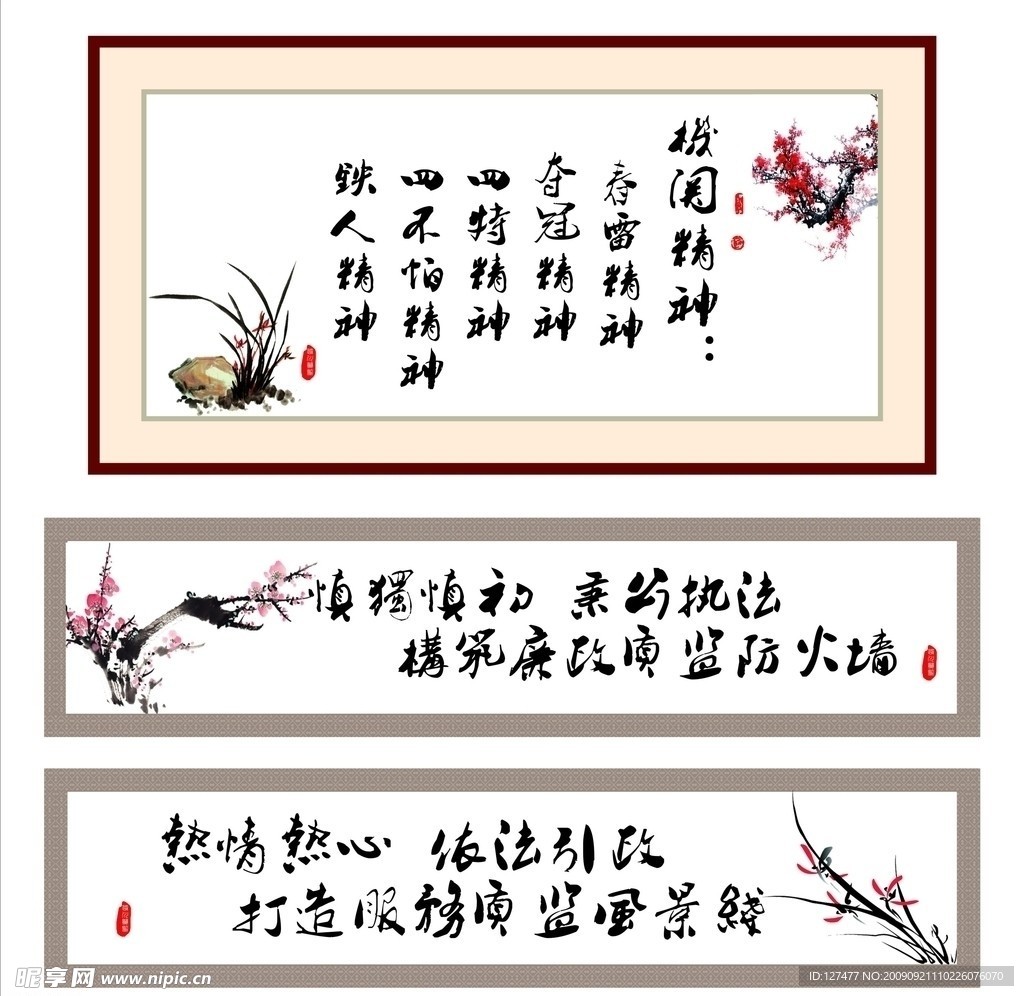 機関精神：
春雷精神
夺冠精神
四特精神
四不怕精神
鉄人精神
慎獨慎初 秉公执法
構筑廉政質监防火墙
熱情熱心 依法引政
打造服務質监風景綫
昵享网 www.nipic.cn
ID:127477 NO:20090921110226076070